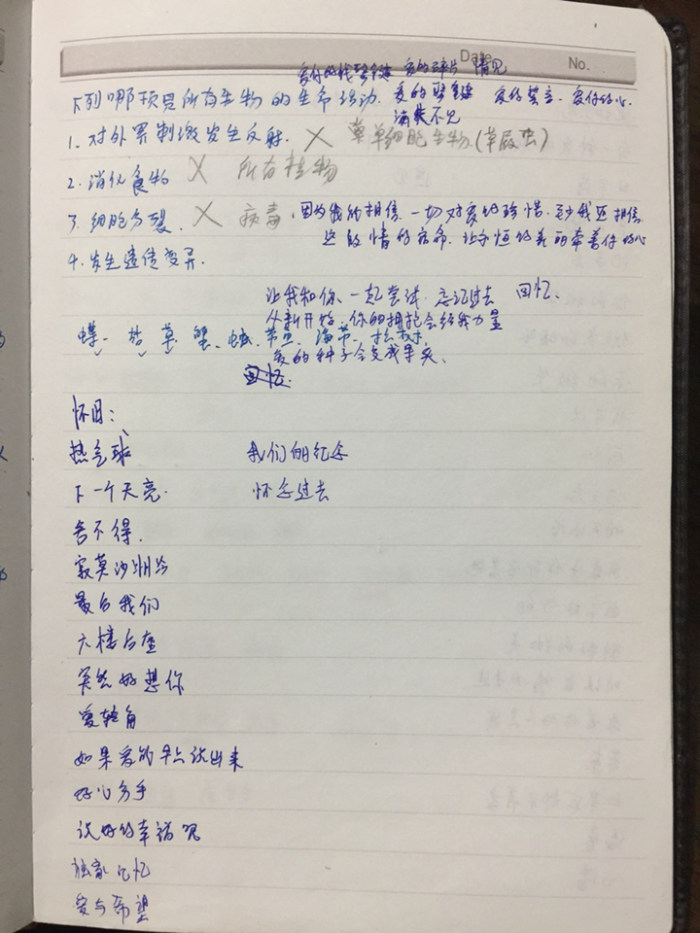 Date No.
爱的碎片 情见
下列哪项是所有生物的生命活动. 爱的誓言.
消失不见
1. 对外界刺激发生反射. × 草单细胞生物(草履虫)
2. 消化食物 × 所有植物
3. 细胞分裂. × 病毒. 因为我们相信. 一切对爱的珍惜. 我还相信
这段情的宿命. 让永恒的美丽牵着你的心
4. 发生遗传变异.
让我和你、一起尝试. 忘记过去 回忆、
从新开始. 你的拥抱会给我力量
草. 蟹. 海带. 松树.
爱的种子会变成果实、
回忆.
怀旧:
热气球 我们的纪念
下一个天亮. 怀念过去
舍不得.
寂寞沙洲冷
最后我们
六楼后座
突然好想你
爱转角
如果爱能早点说出来
好心分手
说好的幸福呢
独家记忆
爱与希望